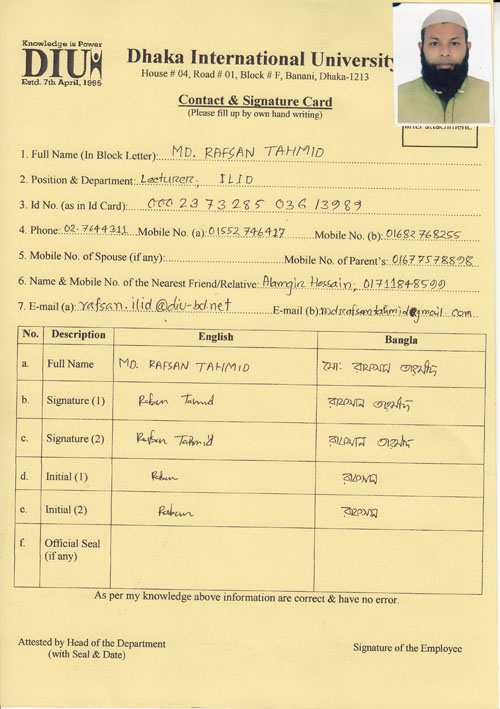 Knowledge is Power
DIU
Estd. 7th April, 1995
Dhaka International University
House # 04, Road # 01, Block # F, Banani, Dhaka-1213
Contact & Signature Card
(Please fill up by own hand writing)
after attachment.
1. Full Name (In Block Letter): MD. RAFSAN TAHMID
2. Position & Department: Lecturer, ILID
3. Id No. (as in Id Card): 000 2373285 036 13989
4. Phone: 02-7644211 Mobile No. (a): 01552746417 Mobile No. (b): 01682768255
5. Mobile No. of Spouse (if any): Mobile No. of Parent's: 01677578898
6. Name & Mobile No. of the Nearest Friend/Relative: Alamgir Hossain, 01711848599
7. E-mail (a): rafsan.ilid@diu-bd.net E-mail (b): mdrafsantahmid@gmail.com
No. Description English Bangla
a. Full Name MD. RAFSAN TAHMID মো: রাফসান তাহমীদ
b. Signature (1) রাফসান তাহমীদ
c. Signature (2) Rafsan Tahmid রাফসান তাহমীদ
d. Initial (1) রাফসান
e. Initial (2) রাফসান
f. Official Seal
(if any)
As per my knowledge above information are correct & have no error.
Attested by Head of the Department
(with Seal & Date)
Signature of the Employee